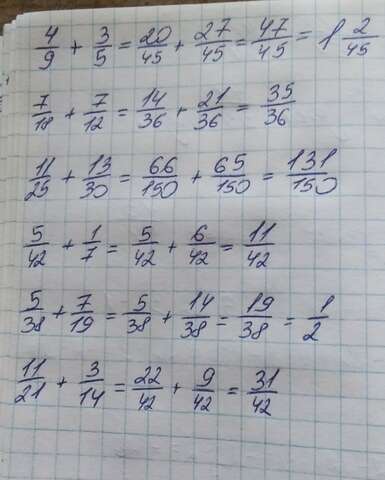 4/9 + 3/5 = 20/45 + 27/45 = 47/45 = 1 2/45
7/18 + 7/12 = 14/36 + 21/36 = 35/36
11/25 + 13/30 = 66/150 + 65/150 = 131/150
5/42 + 1/7 = 5/42 + 6/42 = 11/42
5/38 + 7/19 = 5/38 + 14/38 = 19/38 = 1/2
11/21 + 3/14 = 22/42 + 9/42 = 31/42